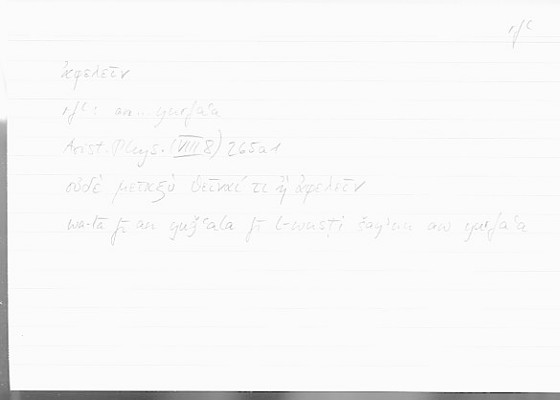 rfʿ
ἀφελεῖν
rfʿ: an.. yurfaʿa
Arist. Phys. (VIII 8) 265a1
οὐδὲ μεταξὺ θεῖναί τι ἢ ἀφελεῖν
wa-lā fī an yuǧʿala fī l-wasṭi šayʾun aw yurfaʿa